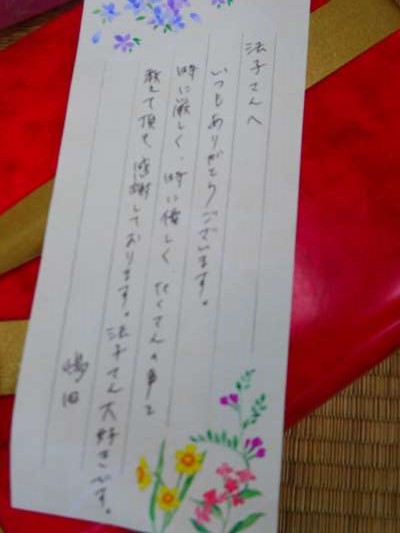 法子さんへ
いつもありがとうございます。
時に厳しく、時に優しく、たくさんの事を
教えて頂き感謝しております。法子さん大好きです。
嶋田